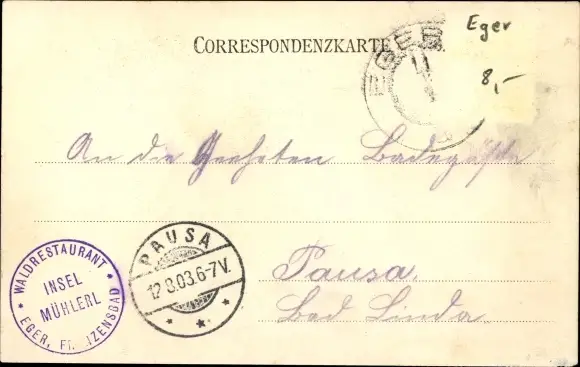 CORRESPONDENZKARTE
EGER
Eger
8,-
An die Geehrten Badegäste
PAUSA
12.8.03.6-7V.
Pausa
Bad Linda.
* WALDRESTAURANT *
INSEL
MÜHLERL
EGER, FRANZENSBAD